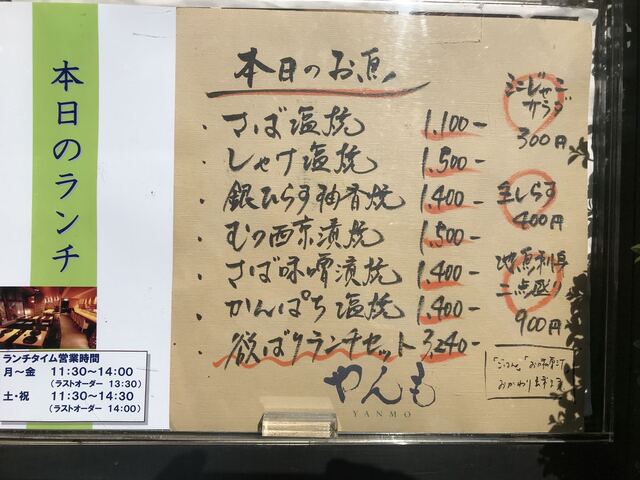 本日のランチ
ランチタイム営業時間
月～金 11:30～14:00
(ラストオーダー 13:30)
土・祝 11:30～14:30
(ラストオーダー 14:00)
本日のお魚
・さば塩焼 1.100-
・しゃけ塩焼 1.500-
・銀ひらす柚香焼 1.400-
・むつ西京漬焼 1.500-
・さば味噌漬焼 1.400-
・かんぱち塩焼 1.400-
・欲ばりランチセット 3.240-
ミニジャコ
サラダ
300円
生しらす
400円
地魚刺身
二点盛り
900円
「ごはん」「お味噌汁」
おかわり出来ます
やんも
YANMO